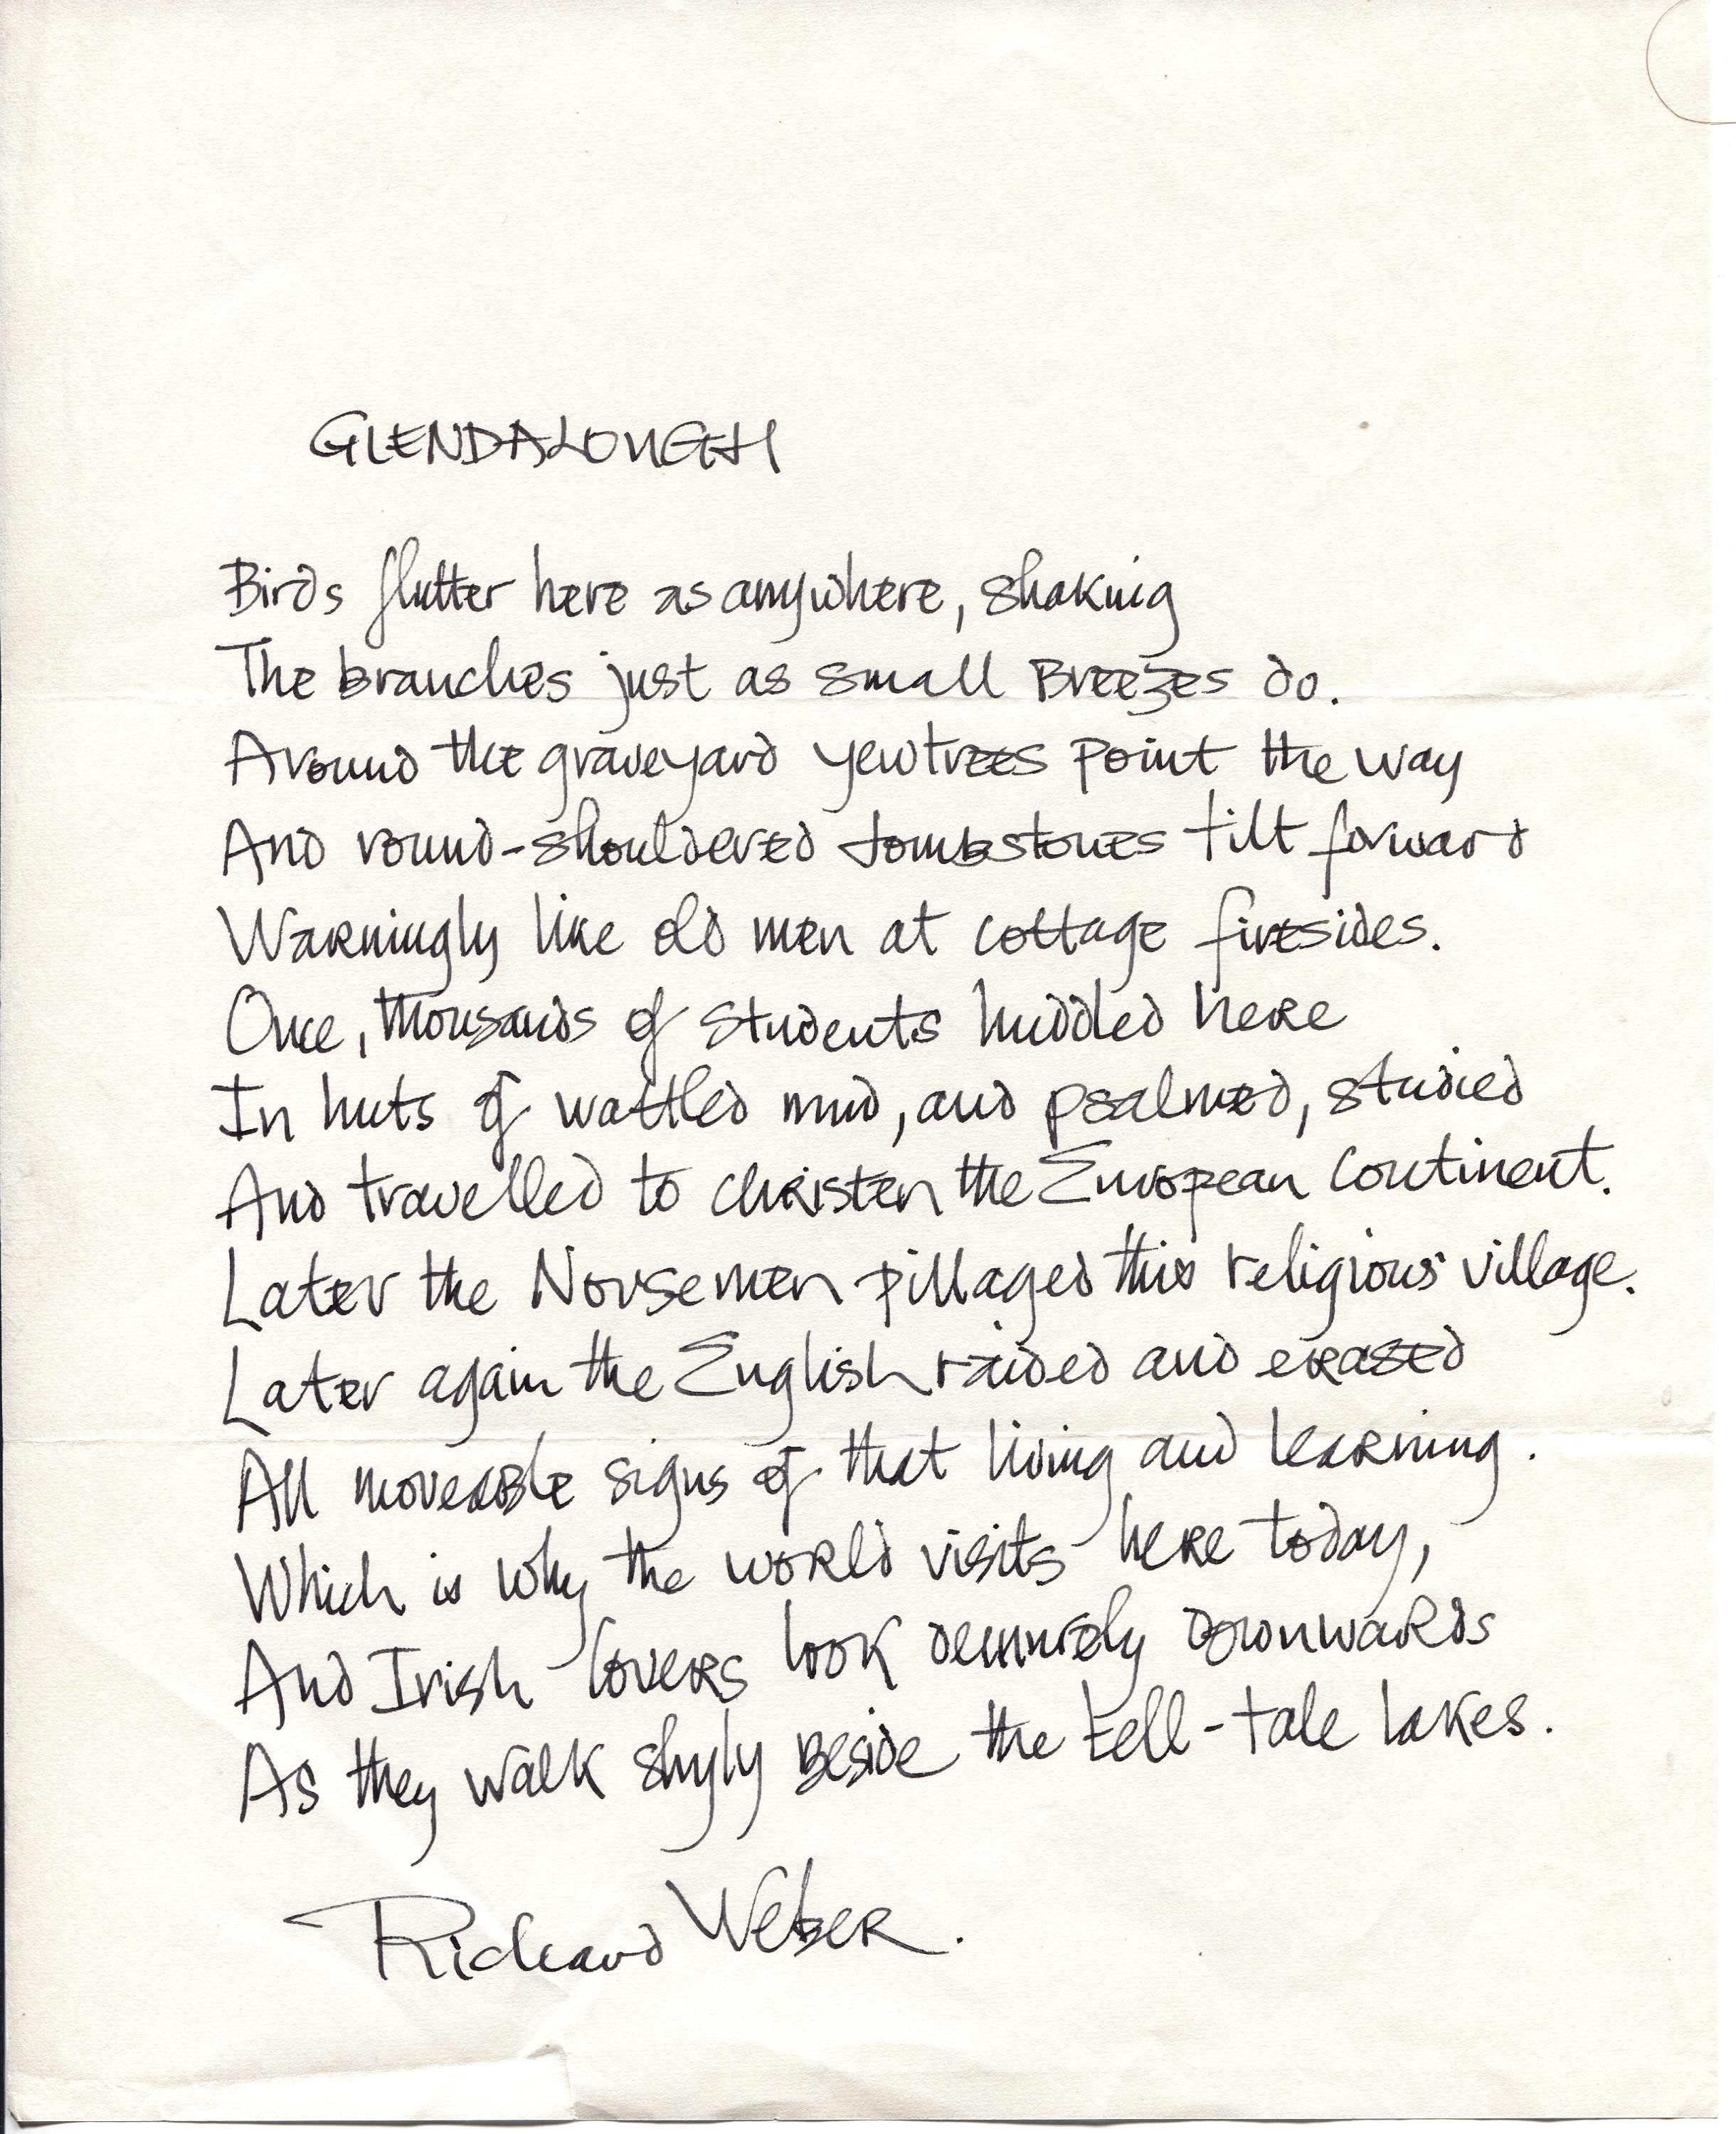 GLENDALOUGH
Birds flutter here as anywhere, shaking
The branches just as small Breezes do.
Around the graveyard yewtrees point the way
And round-shouldered tombstones tilt forward
Warningly like old men at cottage firesides.
Once, thousands of students huddled here
In huts of wattled mud, and psalmed, studied
And travelled to christen the European Continent.
Later the Norsemen pillaged this religious village.
Later again the English raided and erased
All moveable signs of that living and learning.
Which is why the world visits here today,
And Irish lovers look demurely downwards
As they walk shyly beside the tell-tale lakes.
Richard Weber.